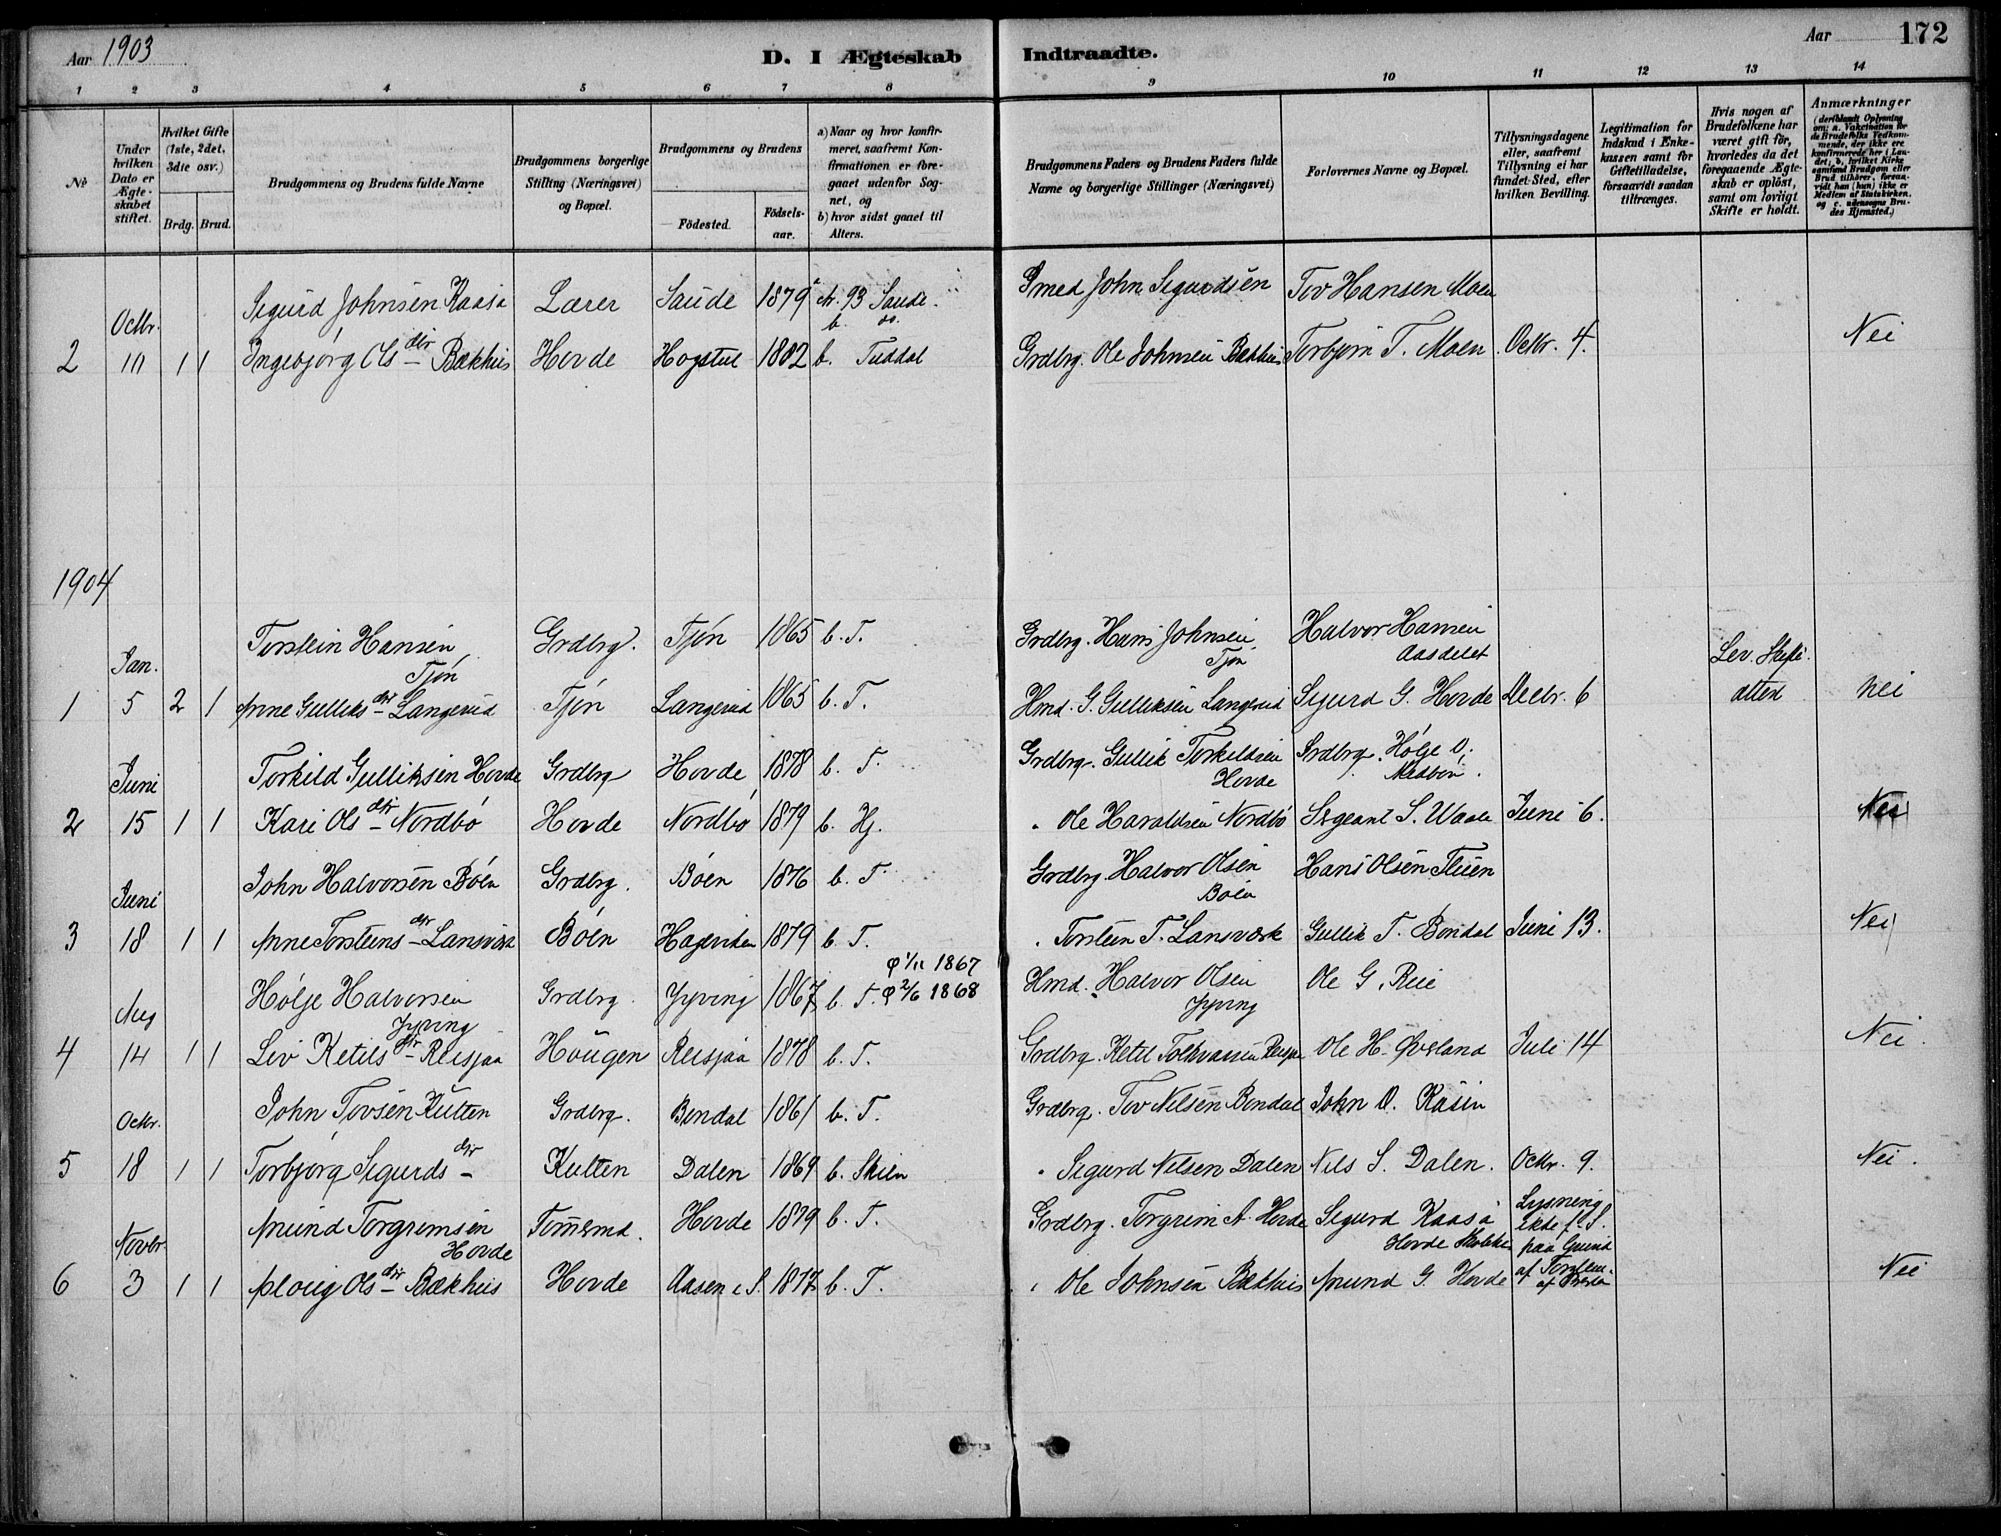 Aar 1903
D. I Ægteskab Indtraadte.
Aar 172
1 2 3 4 5 6 7 8 9 10 11 12 13 14
№
Under hvilken Dato er Ægteskabet stiftet.
Hvilket Gifte (1ste, 2det, 3die osv.)
Brdg. Brud.
Brudgommens og Brudens fulde Navne
Brudgommens borgerlige Stilling (Næringsvei) og Bopæl.
Brudgommens og Brudens
Fødested.
Fødselsaar.
a) Naar og hvor konfirmeret, saafremt Konfirmationen er foregaaet udenfor Sognet, og
b) hvor sidst gaaet til Alters.
Brudgommens Faders og Brudens Faders fulde Navne og borgerlige Stillinger (Næringsvei)
Forlovernes Navne og Bopæl.
Tillysningsdagene eller, saafremt Tillysning ei har fundet Sted, efter hvilken Bevilling.
Legitimation for Indskud i Enkekassen samt for Giftetilladelse, forsaavidt saadan tiltrænges.
Hvis nogen af Brudefolkene har været gift før, hvorledes da det foregaaende Ægteskab er opløst, samt om lovligt Skifte er holdt.
Anmærkninger (deriblandt Oplysning om: a. Vakcination for de Brudefolks Vedkommende, der ikke ere konfirmerede her i Landet; b. hvilket Kirkesamfund Brudgom eller Brud tilhører, forsaavidt han (hun) ikke er Medlem af Statskirken, og c. udensogns Brudes Hjemsted.)
Sigurd Johnsen Kaasa Lærer Saude 1879 a. 93 Saude. Smed John Sigurdsen Tov Hansen Moen
Octbr. b. do.
2 10 1 1 Ingebjørg Olsdtr Bækhus Hovde Hogstul 1882 b. Tuddal Grdbrg. Ole Johnsen Bækhus Torbjørn T. Moen Octbr. 4. Nei
1904
Torstein Hansen Grdbrg. Tjøn 1865 b. T. Grdbrg. Hans Johnsen Halvor Hansen
Jan. Tjøn Tjøn Aasdelet Lev. Skifte
1 5 2 1 Anne Gulliksdtr Langerud Tjøn Langerud 1865 b. T. Hmd. G. Gulliksen Langerud Sigurd G. Hovde Decbr. 6 Nei
Torkild Gulliksen Hovde Grdbrg Hovde 1878 b. T. Grdbrg. Gullik Torkildsen Grdbrg. Hølje O.
Juni Hovde Medbøn.
2 15 1 1 Kari Olsdtr Nordbø Hovde Nordbø 1879 b. Hj. " Ole Haraldsen Nordbø Sergeant S. Waale Juni 6. Nei
John Halvorsen Bøen Grdbrg. Bøen 1876 b. T. Grdbrg Halvor Olsen Hans Olsen Fluen
Juni Bøen
3 18 1 1 Anne Torsteensdtr Lansværk Bøen Hageviken 1879 b. T. " Torsteen T. Lansværk Gullik T. Bøndal Juni 13. Nei
φ 1/11 1867
Hølje Halvorsen Grdbrg. Jyving 1867 b. T. φ 2/6 1868 Hmd. Halvor Olsen Ole G. Reie
Aug Jyving Jyving
4 14 1 1 Liv Ketilsdtr Reisjaa Haugen Reisjaa 1878 b. T. Grdbrg. Ketil Ole H. Øverland Juli 14 Nei.
John Tovsen Kulten Grdbrg. Bøndal 1861 b. T. Grdbrg. Tov Nilsen Bøndal John O. Kasin
Octbr.
5 18 1 1 Torbjørg Sigurdsdtr Kulten Dalen 1869 b. Skien " Sigurd Nilsen Dalen Nils S. Dalen. Octbr. 9. Nei.
Amund Torgrimsen Tømmermd. Hovde 1879 b. T. Grdbrg. Torgrim A. Hovde Sigurd Kaasa Lysning
Novbr. Hovde Hovde ikke f. S. paa Grund af
6 3 1 1 Aaloug Olsdtr Bækhus Hovde Aasen i S. 1877 b. T. " Ole Johnsen Bækhus Amund G. Hovde Nei